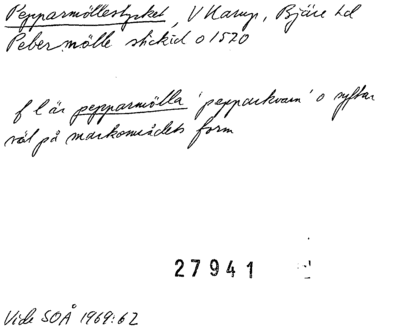 Pepparmöllestycket, V Karup, Bjäre hd
Pebermölle stickid o 1570
f l är pepparmölla 'pepparkvarn' o syftar
väl på markområdets form
27941
Vide SOÅ 1969:62